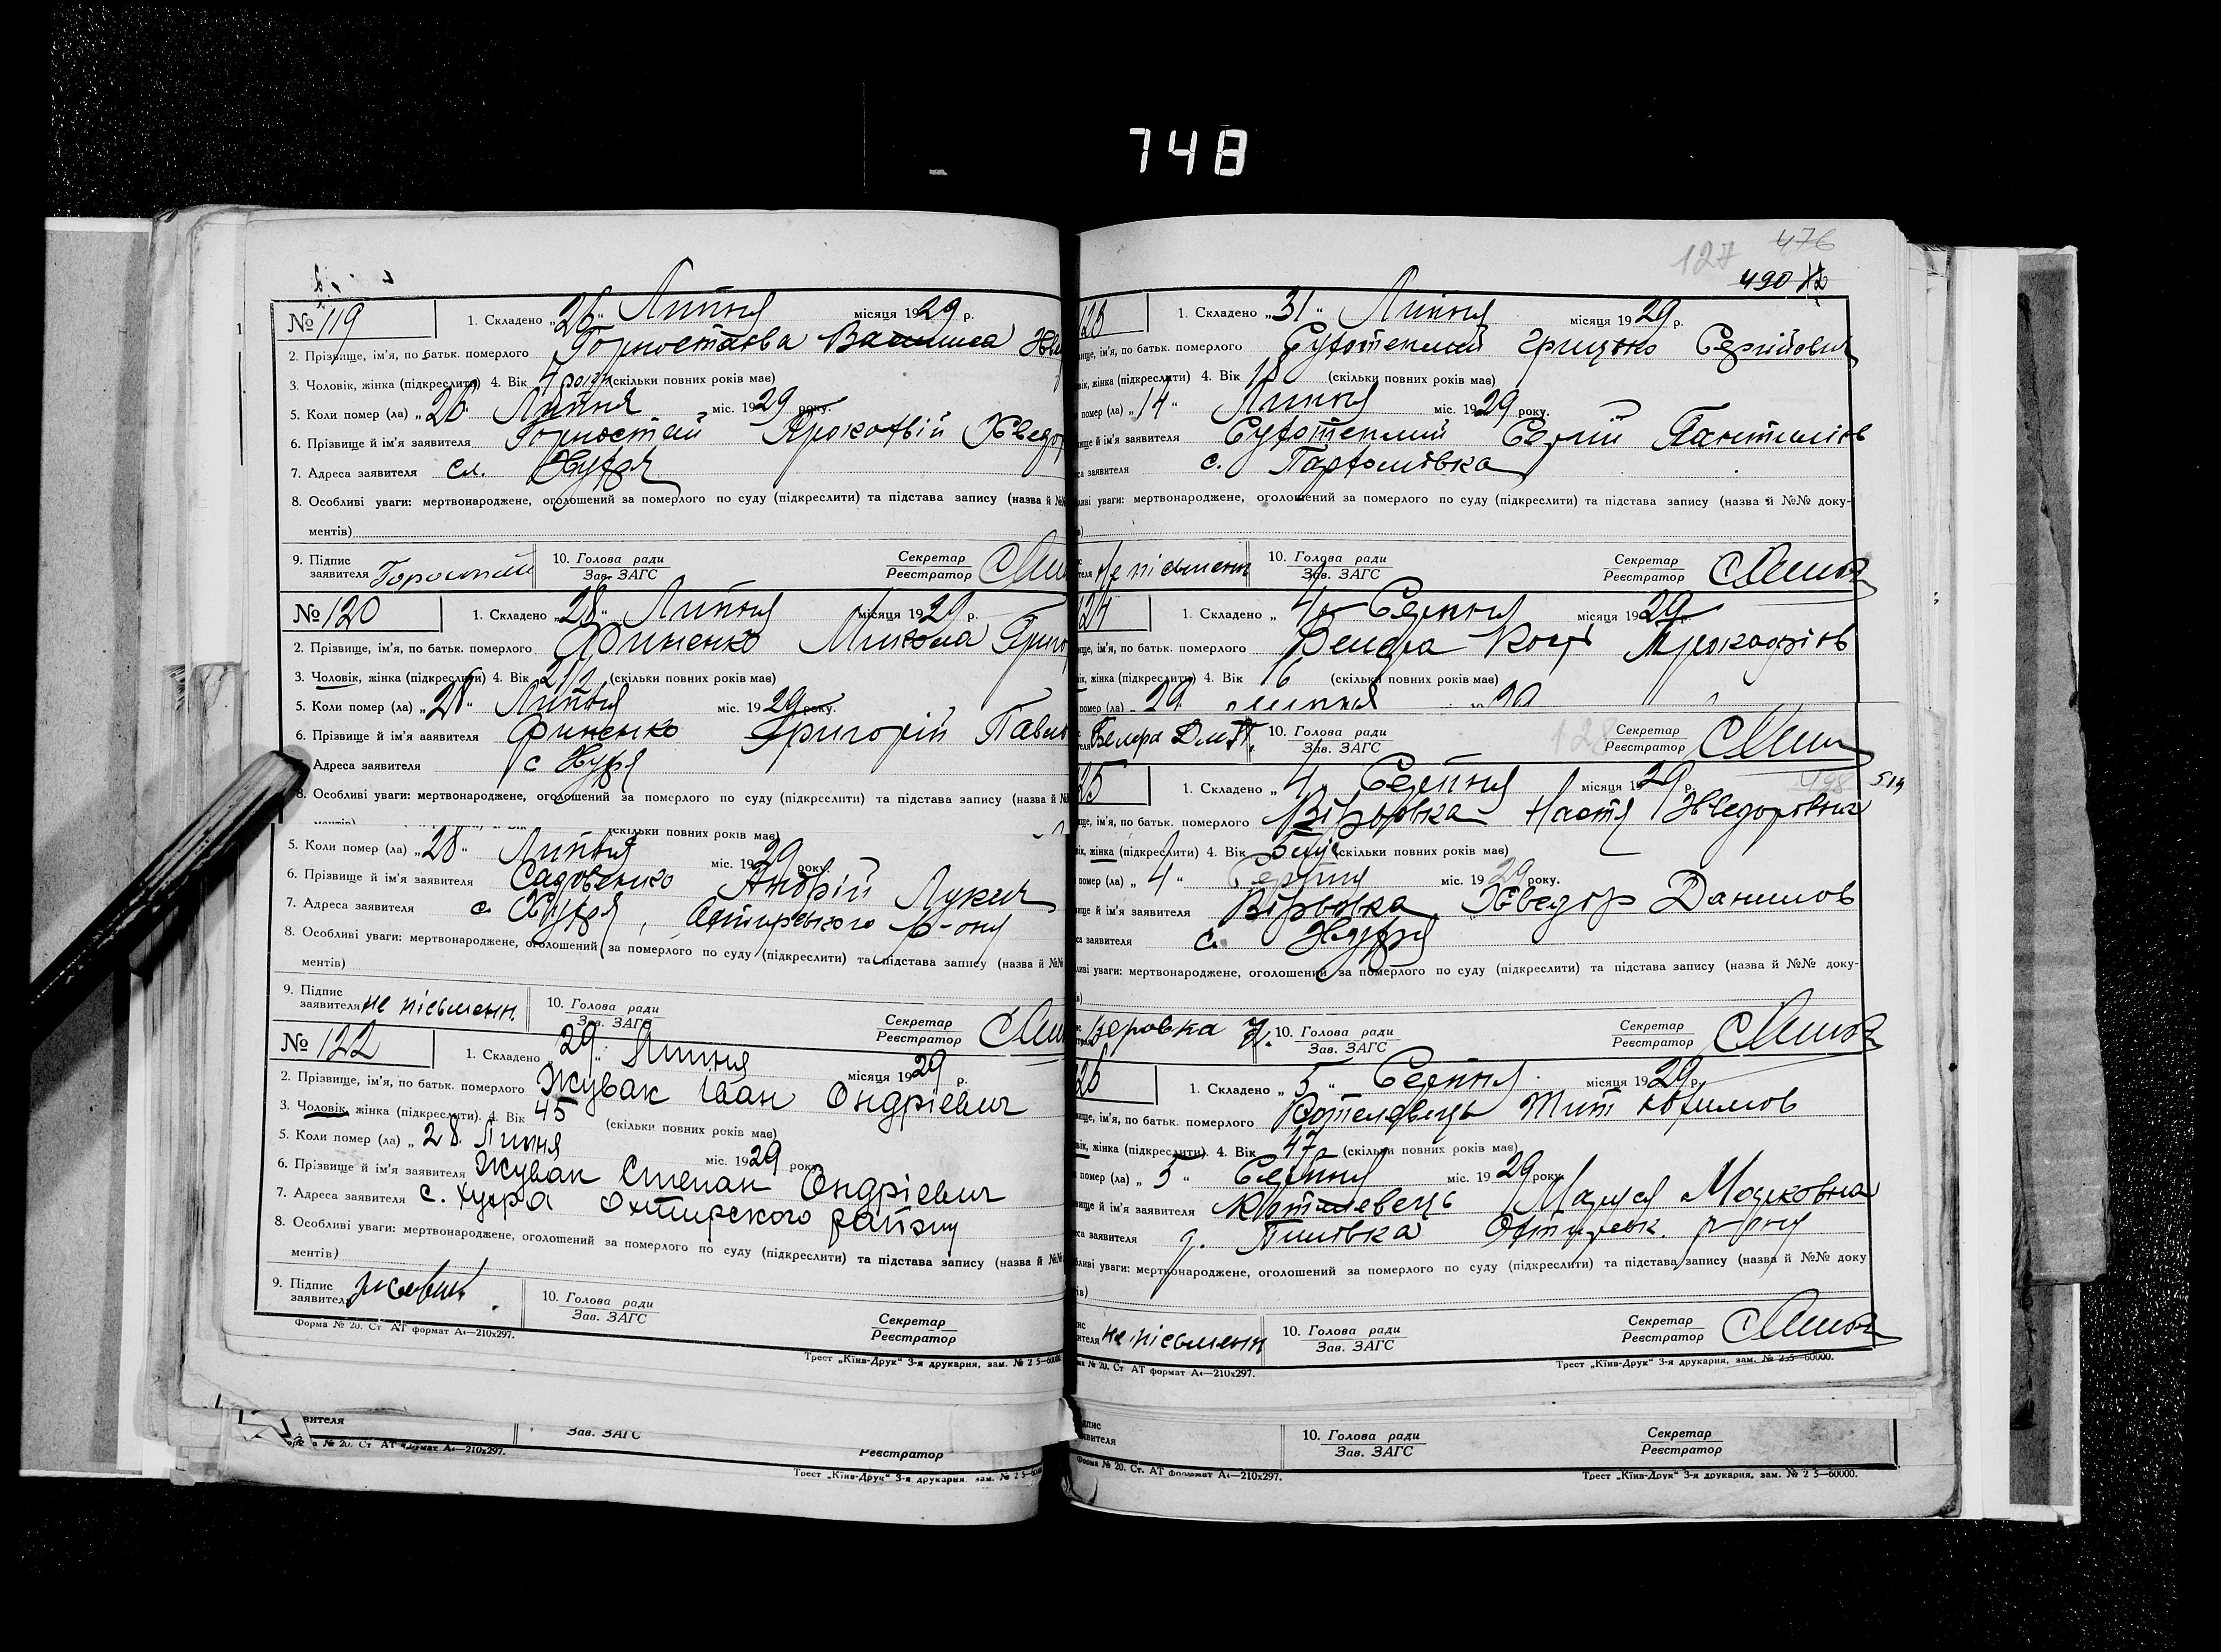 748
№ 119
1. Складено „26“ Липня місяця 1929 р.
2. Прізвище, ім'я, по батьк. померлого Горностаєва
3. Чоловік, жінка (підкреслити) 4. Вік 4 роки (скільки повних років має)
5. Коли помер (ла) „26“ Липня міс. 1929 року.
6. Прізвище й ім'я заявителя Горностай
7. Адреса заявителя сл. Хухря
8. Особливі уваги: мертвонароджене, оголошений за померлого по суду (підкреслити) та підстава запису (назва й №№
ментів)
9. Підпис заявителя 10. Голова ради Зав. ЗАГС Секретар Реєстратор
№ 120
1. Складено „28“ Липня місяця 1929 р.
2. Прізвище, ім'я, по батьк. померлого Финенко Микола
3. Чоловік, жінка (підкреслити) 4. Вік 2 1/2 (скільки повних років має)
5. Коли помер (ла) „28“ Липня міс. 1929 року.
6. Прізвище й ім'я заявителя Финенко Григорій
7. Адреса заявителя с Хухря
8. Особливі уваги: мертвонароджене, оголошений за померлого по суду (підкреслити) та підстава запису (назва й №
(скільки повних років має)
5. Коли помер (ла) „28“ Липня міс. 1929 року.
6. Прізвище й ім'я заявителя Садовенко Андрій Лукич
7. Адреса заявителя с. Хухря, Охтирського р-ону
8. Особливі уваги: мертвонароджене, оголошений за померлого по суду (підкреслити) та підстава запису (назва й №№
ментів)
9. Підпис заявителя не письменн. 10. Голова ради Зав. ЗАГС Секретар Реєстратор
№ 122
1. Складено „29“ Липня місяця 1929 р.
2. Прізвище, ім'я, по батьк. померлого Жувак Іван Ондрієвич
3. Чоловік, жінка (підкреслити). 4. Вік 45 (скільки повних років має)
5. Коли помер (ла) „28 Липня міс. 1929 року
6. Прізвище й ім'я заявителя Жувак Степан Ондрієвич
7. Адреса заявителя с. Хухра Охтирского району
8. Особливі уваги: мертвонароджене, оголошений за померлого по суду (підкреслити) та підстава запису (назва й №№
ментів)
9. Підпис заявителя 10. Голова ради Зав. ЗАГС Секретар Реєстратор
Форма № 20. Ст АТ формат А4—210х297.
Трест „Київ-Друк“ 3-я друкарня, зам. № 2 5—60000
вителя
Зав. ЗАГС
Реєстратор
№ 20. Ст АТ формат А4—210х297.
Трест „Київ-Друк“ 3-я друкарня, зам. № 2 5—60000
127 476
490
123
1. Складено „31“ Липня місяця 1929 р.
ище, ім'я, по батьк. померлого Сухотеплий Грицько Сергійович
вік, жінка (підкреслити) 4. Вік 18 (скільки повних років має)
помер (ла) „14“ Липня міс. 1929 року.
ище й ім'я заявителя Сухотеплий Сергій
са заявителя с. Пархомівка
ливі уваги: мертвонароджене, оголошений за померлого по суду (підкреслити) та підстава запису (назва й №№ доку-
не письменн 10. Голова ради Зав. ЗАГС Секретар Реєстратор
124
1. Складено „4“ Серпня місяця 1929 р.
ище, ім'я, по батьк. померлого
ік, жінка (підкреслити) 4. Вік 6 (скільки повних років має)
помер (ла) „29 липня 29
10. Голова ради Зав. ЗАГС 128 Секретар Реєстратор
25
1. Складено „4“ Серпня місяця 1929 р. 514
ище, ім'я, по батьк. померлого Вірьовка Настя Хведорівна
ік, жінка (підкреслити) 4. Вік (скільки повних років має)
помер (ла) „4“ Серпня міс. 1929 року.
ище й ім'я заявителя Вірьовка Хведор Данилов
са заявителя с. Хухря
ливі уваги: мертвонароджене, оголошений за померлого по суду (підкреслити) та підстава запису (назва й №№ доку-
Веровка 10. Голова ради Зав. ЗАГС Секретар Реєстратор
26
1. Складено „5“ Серпня місяця 1929 р.
ище, ім'я, по батьк. померлого Котелевець Тит
вік, жінка (підкреслити). 4. Вік 47 (скільки повних років має)
помер (ла) „5“ Серпня міс. 1929 року
ище й ім'я заявителя Котелевець
са заявителя
ливі уваги: мертвонароджене, оголошений за померлого по суду (підкреслити) та підстава запису (назва й №№ доку
не письменн 10. Голова ради Зав. ЗАГС Секретар Реєстратор
№ 20. Ст АТ формат А4—210х297.
Трест „Київ-Друк“ 3-я друкарня, зам. № 2 5—60000.
10. Голова ради Зав. ЗАГС Секретар Реєстратор
Форма № 20. Ст. АТ формат А4—210х297.
Трест „Київ-Друк“ 3-я друкарня, зам. № 2 5—60000.